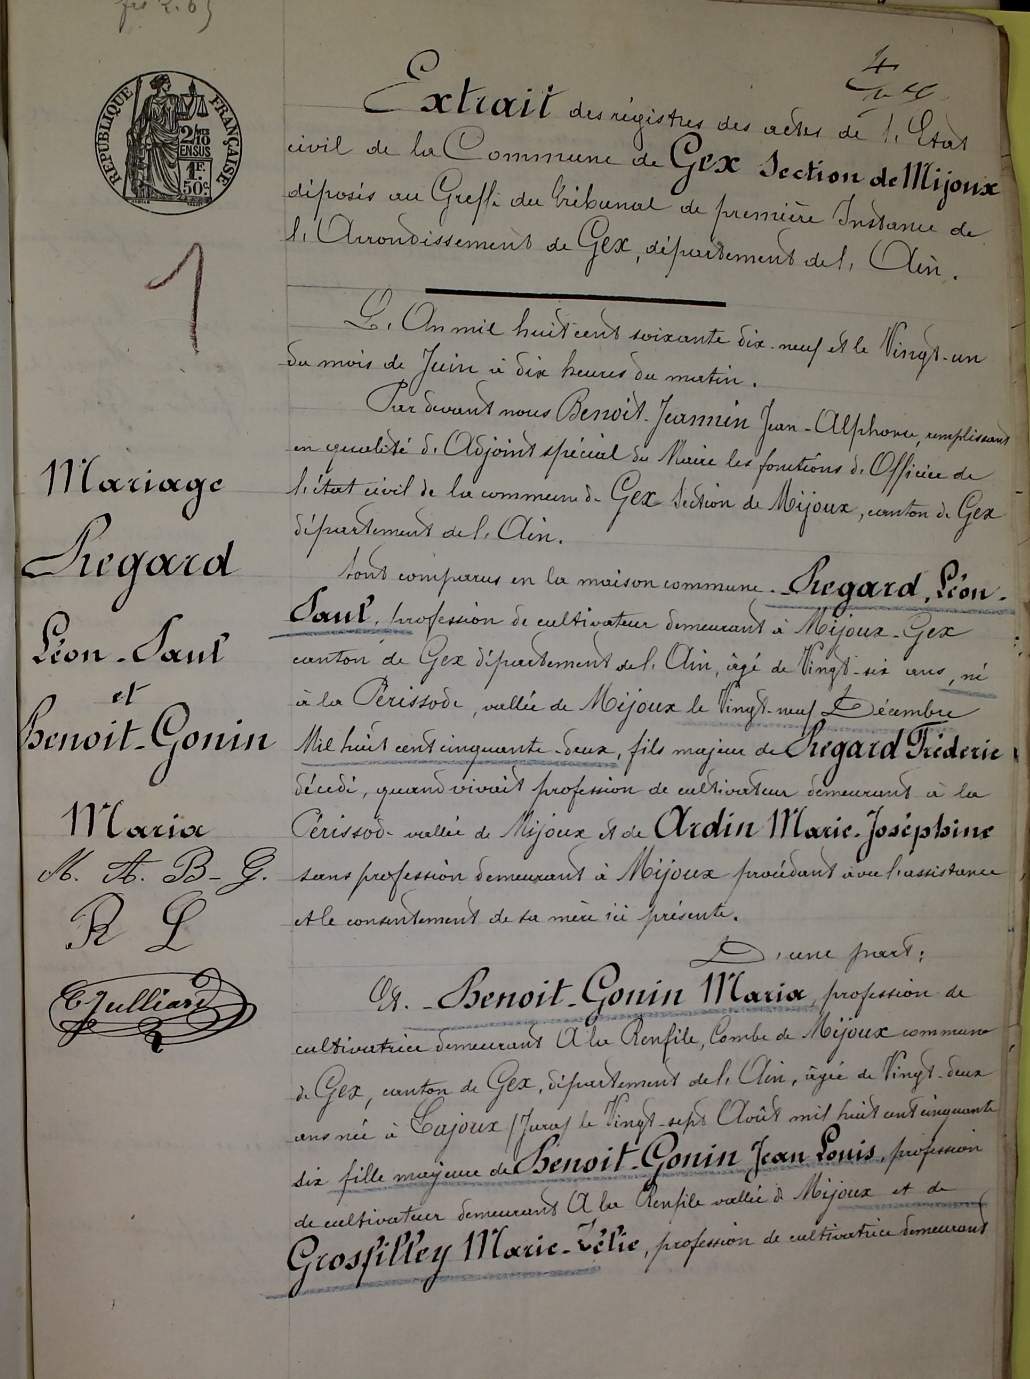 RÉPUBLIQUE FRANÇAISE
2/10 EN SUS
1F. 50c.
Extrait des régistres des actes de l'Etat
civil de la Commune de Gex Section de Mijoux
déposés au Greffe du Tribunal de première Instance de
l'Arrondissement de Gex, département de l'Ain.
1
L'An mil huit cent soixante dix-neuf et le Vingt-un
du mois de Juin à dix heures du matin.
Par devant nous Benoit-Jeannin Jean-Alphonse, remplissant
en qualité d'Adjoint spécial du Maire les fonctions d'Officier de
l'état civil de la commune de Gex Section de Mijoux, canton de Gex
département de l'Ain.
Mariage
Regard
Léon-Paul
et
Benoit-Gonin
Maria
M. A. B-G.
R L
C Julliard
Sont comparus en la maison commune. Regard, Léon-
Paul, profession de cultivateur demeurant à Mijoux-Gex
canton de Gex département de l'Ain, âgé de Vingt-six ans, né
à la Périssode, vallée de Mijoux le Vingt-neuf Décembre
Mil huit cent cinquante-deux, fils majeur de Regard Fréderic
décédé, quand vivait profession de cultivateur demeurant à la
Périssode vallée de Mijoux et de Ardin Marie-Joséphine
sans profession demeurant à Mijoux procédant avec l'assistance
et le consentement de sa mère ici présente.
D'une part;
Et. - Benoit-Gonin Maria, profession de
cultivatrice demeurant A la Renfile, Combe de Mijoux commune
de Gex, canton de Gex, département de l'Ain, âgée de Vingt-deux
ans née à Lajoux (Jura) le Vingt-sept Août mil huit cent cinquante
six fille majeure de Benoit-Gonin Jean Louis, profession
de cultivateur demeurant A la Renfile vallée de Mijoux et de
Grosfilley Marie-Zélie, profession de cultivatrice demeurant